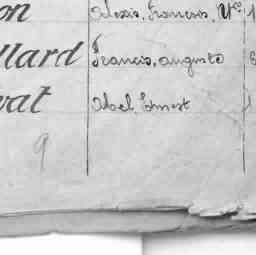 on Alexis, François, Y
llard Francis, auguste 6
vat Abel, Ernest
9